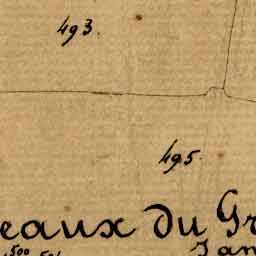 493.
495.
eaux du Gr
500 501
Jan